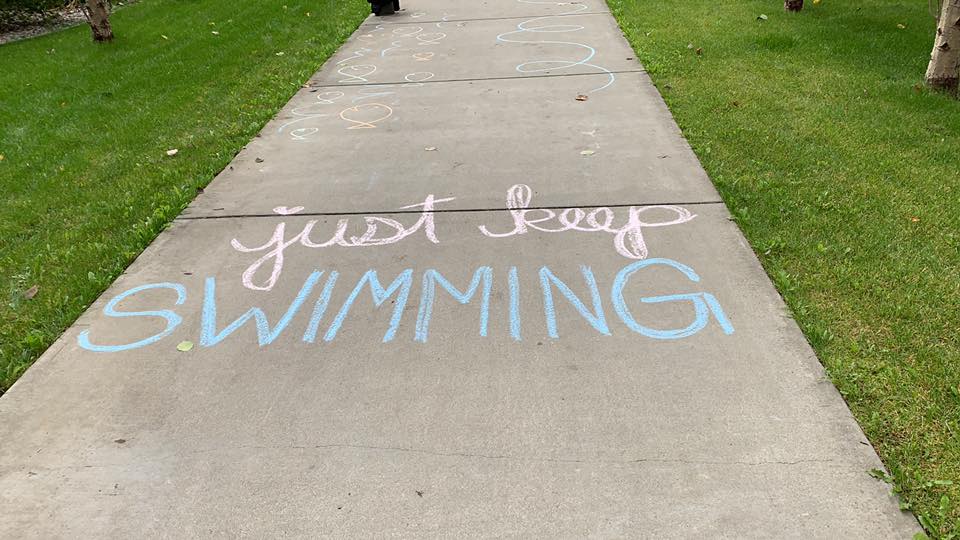 just keep
SWIMMING